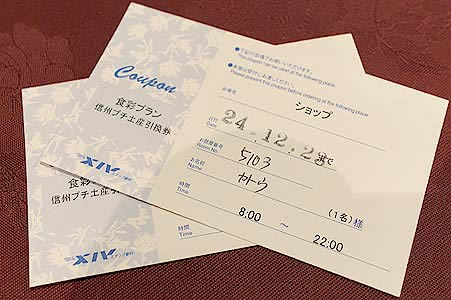 Coupon
食彩プラン
信州プチ土産引換券
XIV
●下記の会場でお使いいただけます。
This coupon can be used at the following place.
●本券は受付にお渡しください。
Please present this coupon before ordering at the following place.
会場名
ショップ
日付
Date
24.12.23まで
お部屋番号
Room No.
5103
お名前
Name
カトウ
(1名)様
時間
Time
8:00 ～ 22:00
食彩プラン
信州プチ土産引換券
XIV
時間
Time